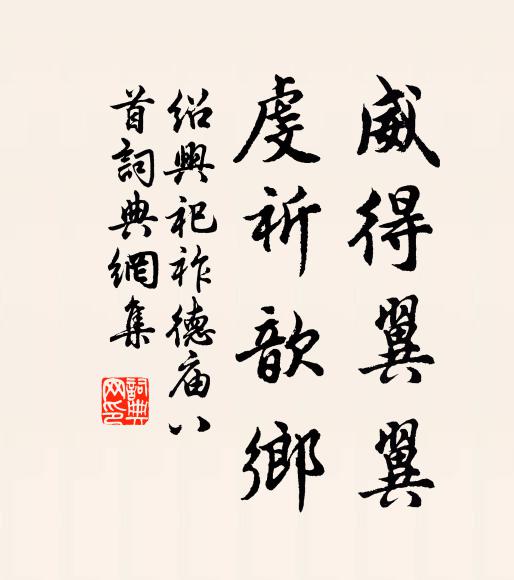 威得翼翼
虔祈歆鄉
紹興祀祚德庙八
首詞典網集
詞典
网印